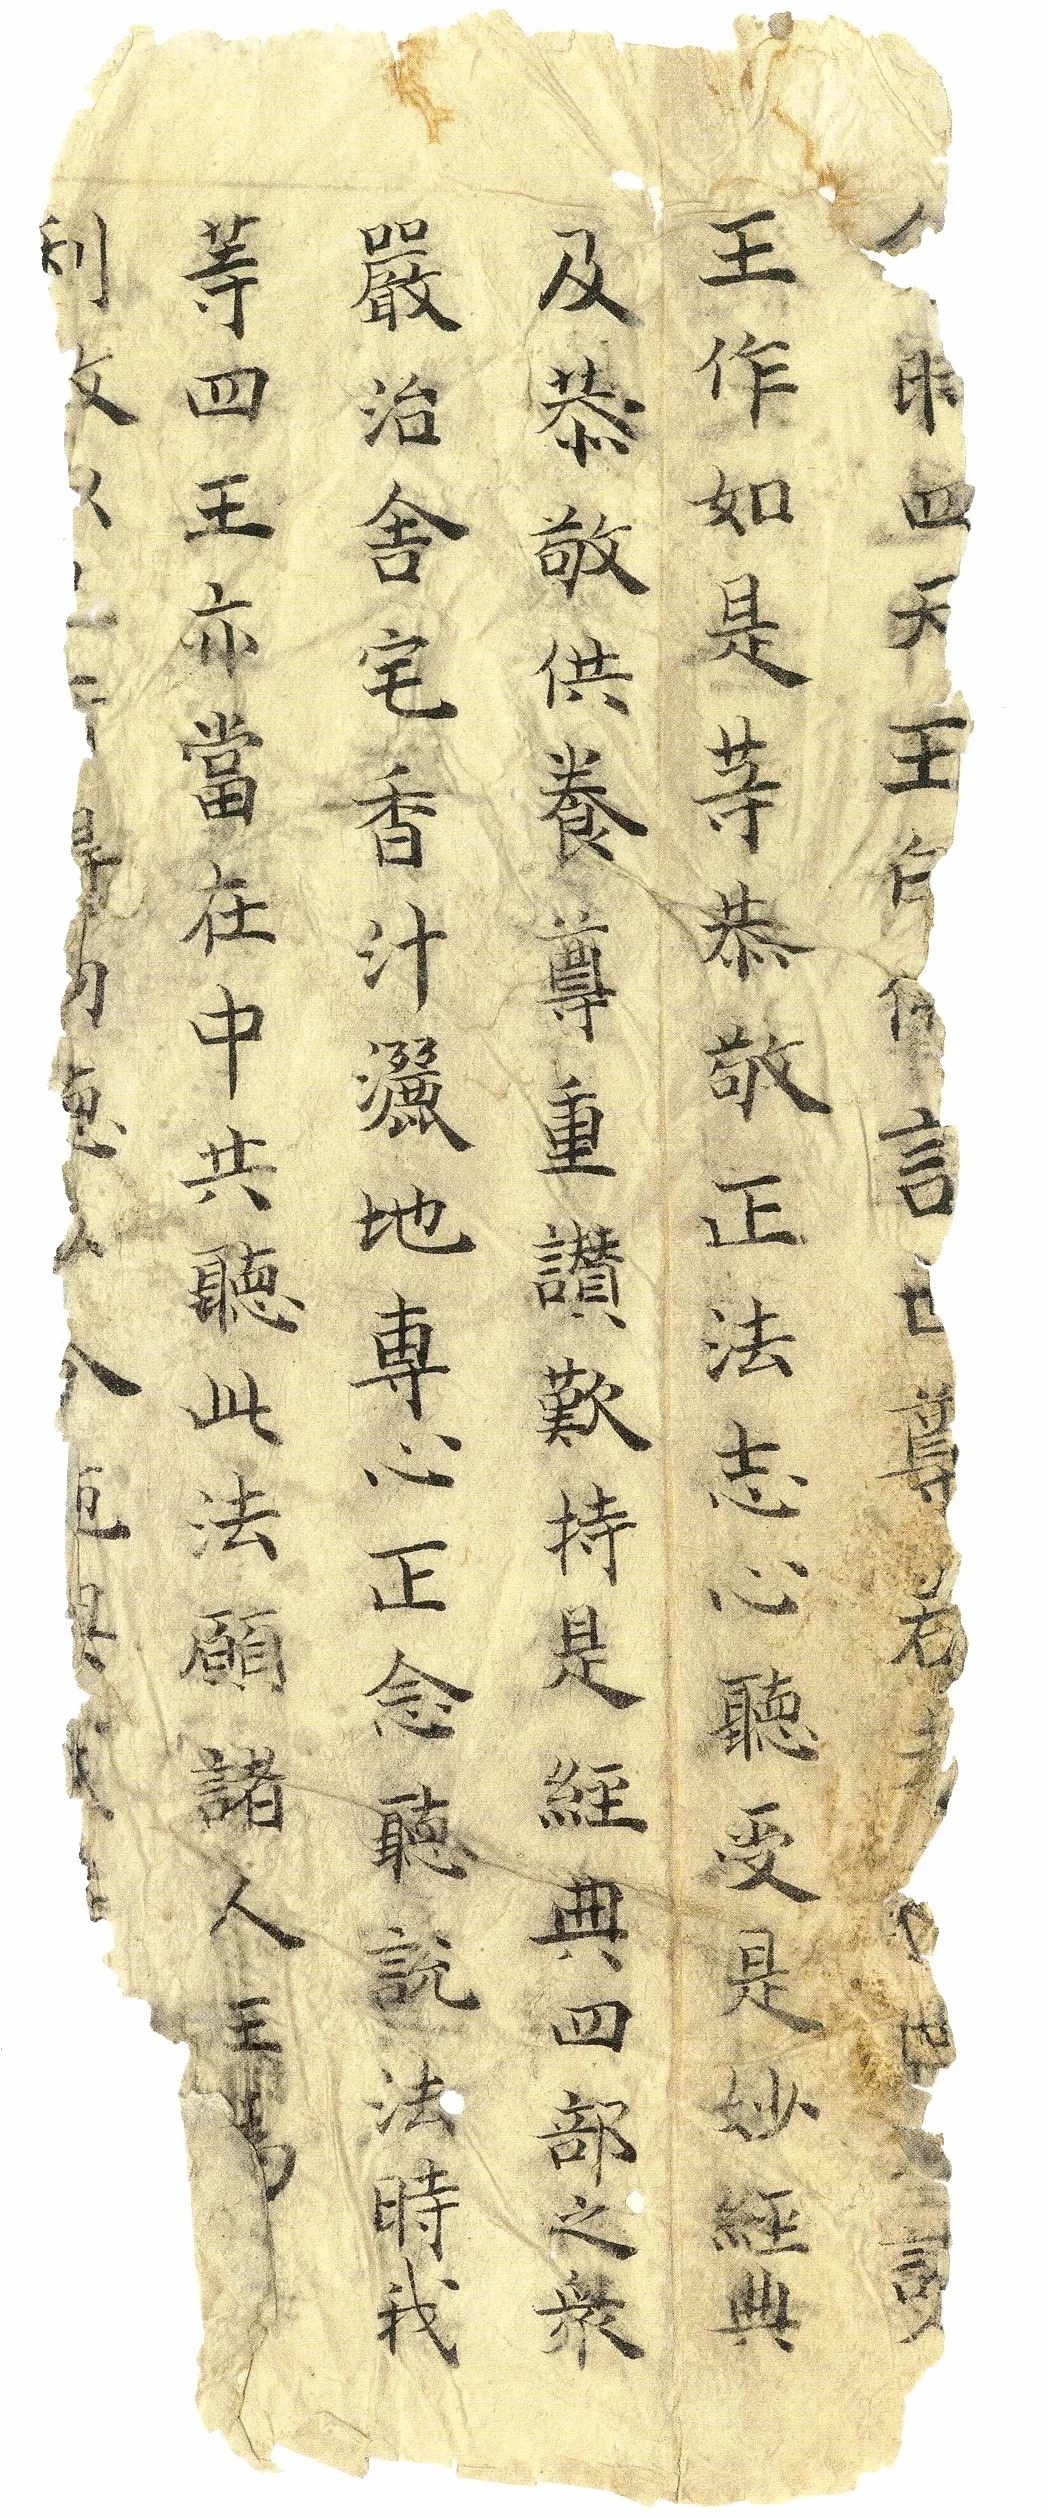 時四天王白佛言世尊若未來世
王作如是等恭敬正法志心聽受是妙經典
及恭敬供養尊重讃歎持是經典四部之衆
嚴治舍宅香汁灑地専心正念聽說法時我
等四王亦當在中共聽此法願諸人王為
利故以得功德